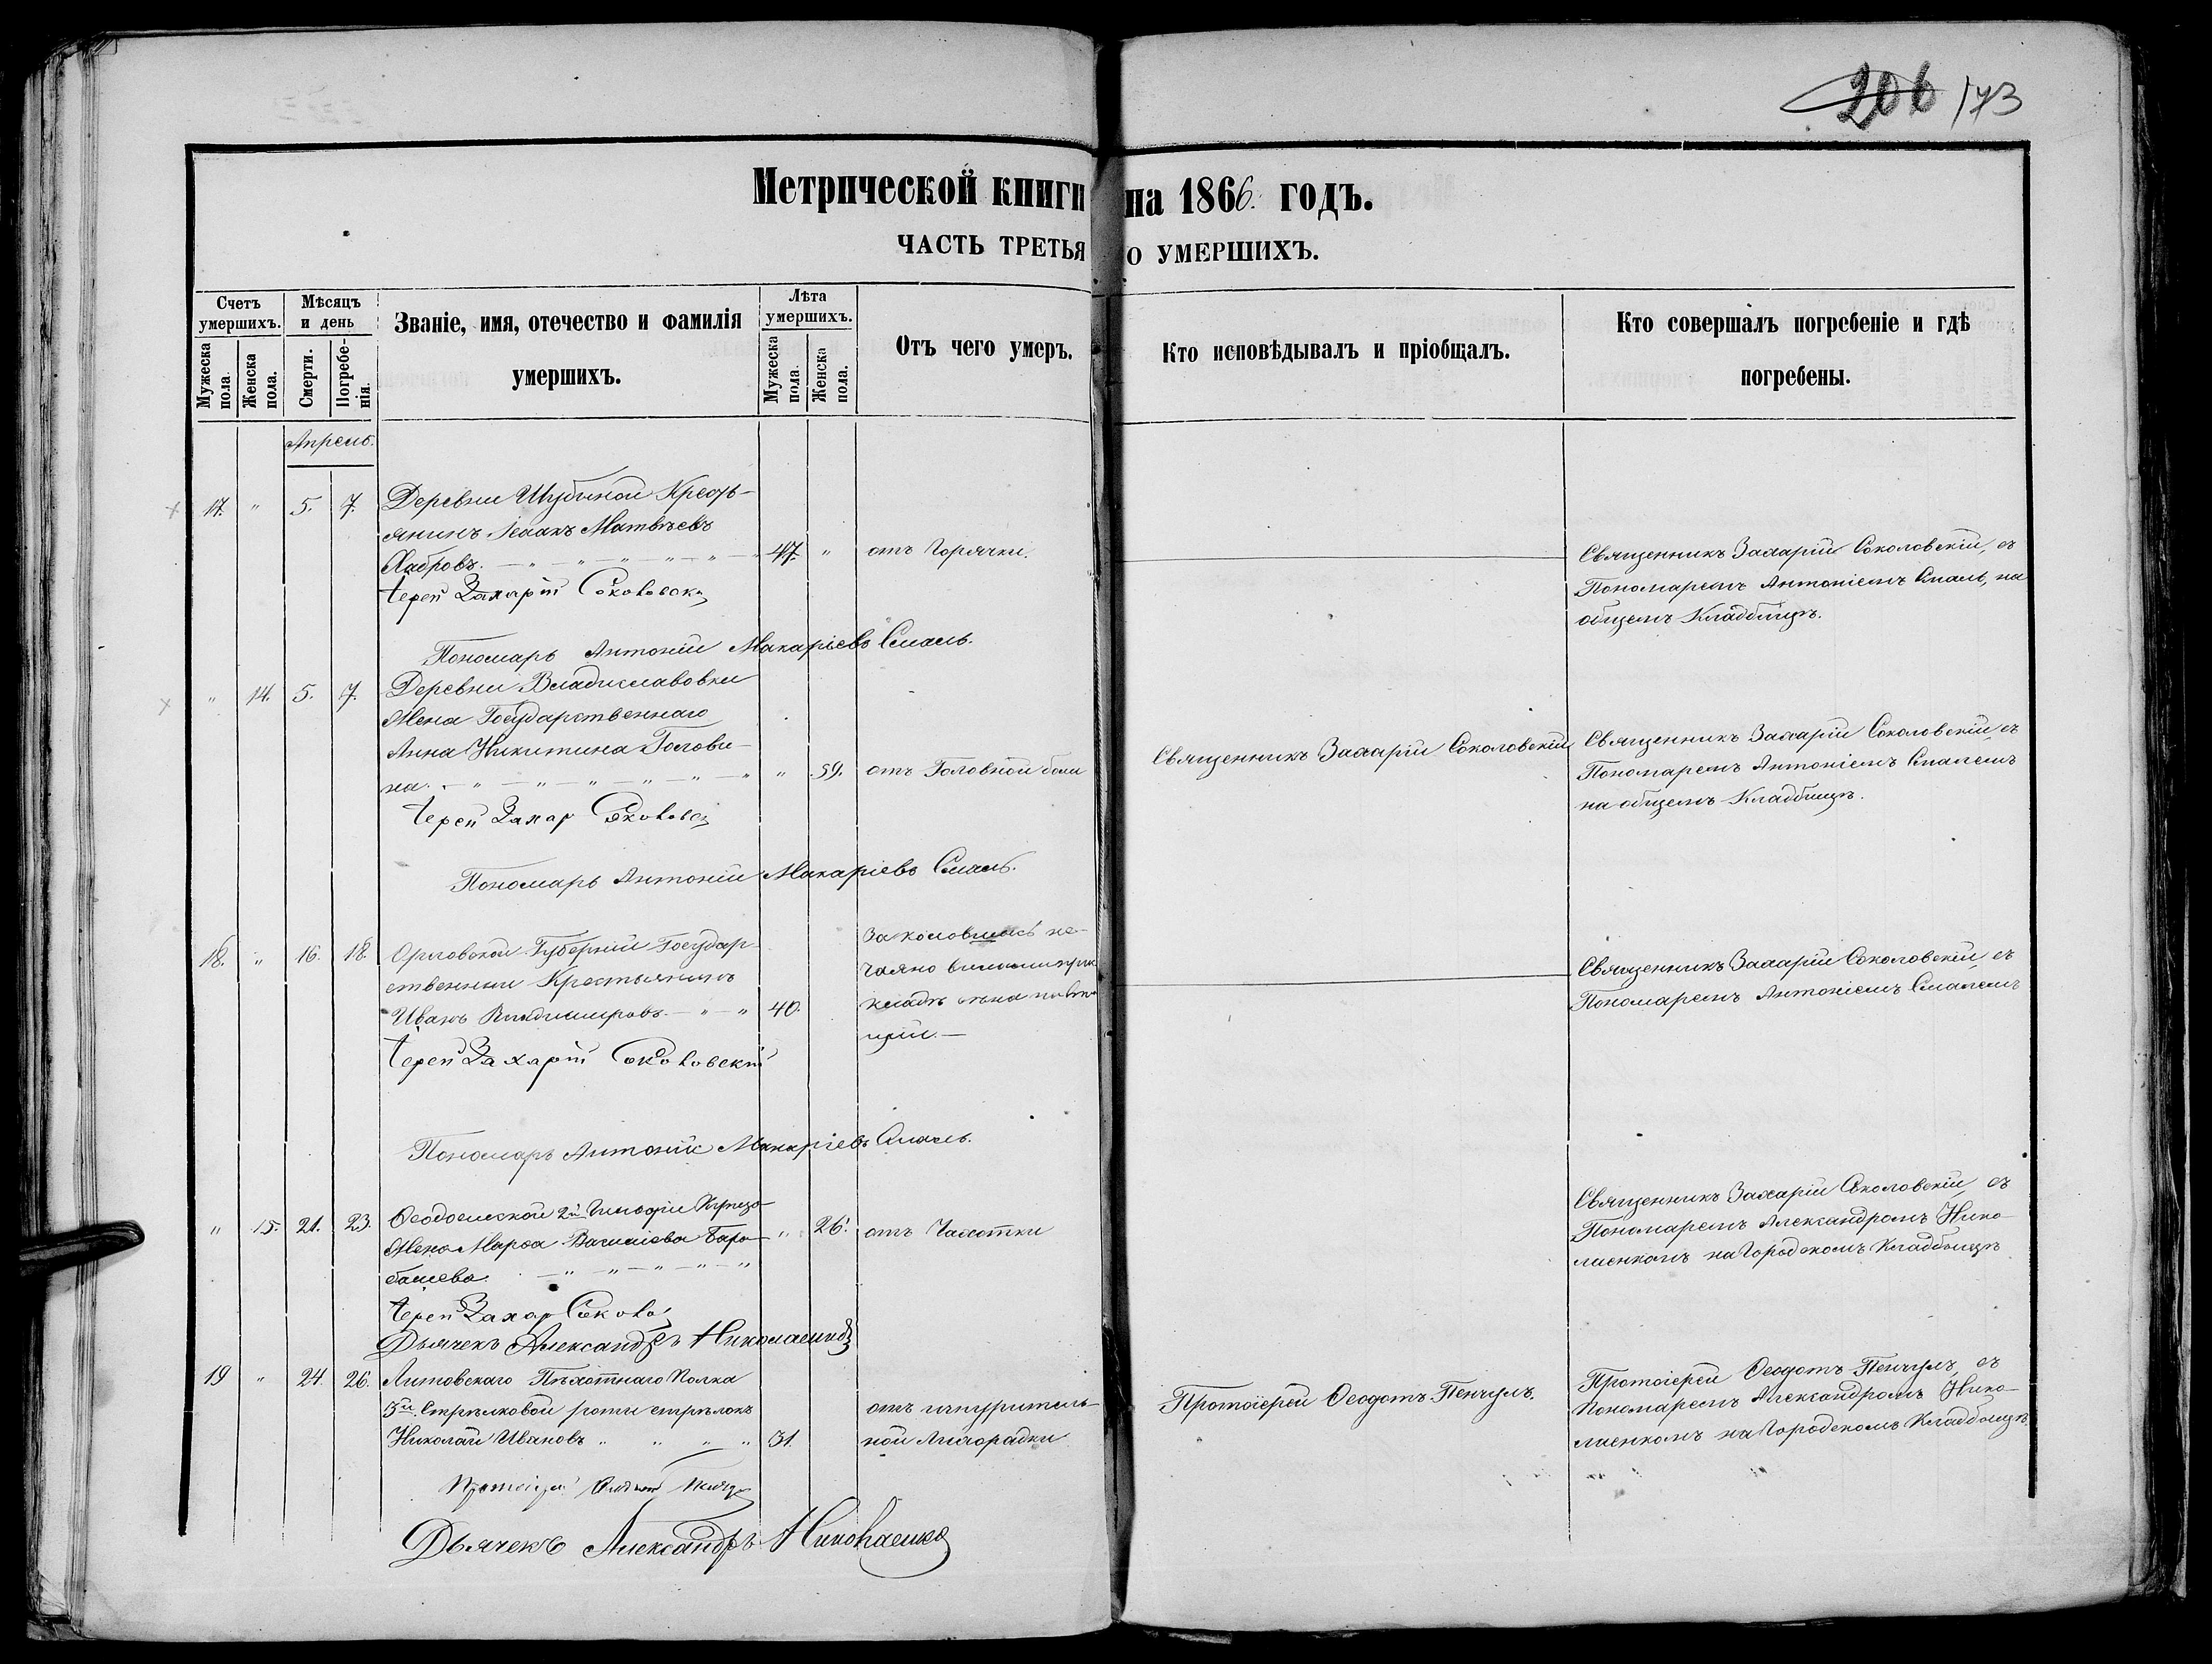 206 173
Метрической книги на 1866. годъ.
ЧАСТЬ ТРЕТЬЯ О УМЕРШИХЪ.
Счетъ умершихъ.
Мужеска пола.
Женска пола.
Мѣсяцъ и день
Смерти.
Погребенія.
Званіе, имя, отечество и фамилія
умершихъ.
Лѣта умершихъ.
Мужеска пола.
Женска пола.
Отъ чего умеръ.
Кто исповѣдывалъ и пріобщалъ.
Кто совершалъ погребеніе и гдѣ
погребены.
Апрель.
17. " 5. 7. Деревни Шубиной Кресть-
янинъ Исаакъ Матвѣевъ
Хабровъ. 47. " отъ Горячки.
Священникъ Захарій Соколовскій, съ
Пономаремъ Антоніемъ Смаль, на
общемъ Кладбищѣ.
Іерей Захарій Соколовскі
Пономарь Антоній Макаріевъ Смаль.
" 14. 5. 7. Деревни Владиславовки
Жена Государственнаго
Анна Никитина Голови-
на. " 59. отъ Головной боли
Священникъ Захарій Соколовскій
Священникъ Захарій Соколовскій, съ
Пономаремъ Антоніемъ Смалемъ
на общемъ Кладбищѣ.
Іерей Захар Соколовс
Пономарь Антоній Макаріевъ Смаль.
18. " 16. 18. Орловской Губерніи Государ-
ственный Крестьянинъ
Иванъ Владимировъ. 40.
Заколовшись не-
чаяно вилами при
кладѣ сена
Священникъ Захарій Соколовскій, съ
Пономаремъ Антоніемъ Смалемъ
Іерей Захарій Соколовскій
Пономарь Антоній Макаріевъ Смаль.
" 15. 21. 23. Ѳеодосійской 2й Гильдіи
Жена Марѳа Василіева Бара-
башева. " 26. отъ Чахотки
Священникъ Захарій Соколовскій, съ
Пономаремъ Александромъ Нико-
лаенкомъ на Городскомъ Кладбищѣ
Іерей Захар Соколо
Дьячекъ Александръ Николаенко
19 " 24. 26. Литовскаго Пѣхотнаго Полка
3й Стрѣлковой роты стрѣлокъ
Николай Ивановъ 31.
отъ изнуритель-
ной Лихорадки
Протоіерей Ѳеодотъ Пенчулъ.
Протоіерей Ѳеодотъ Пенчулъ, съ
Пономаремъ Александромъ Нико-
лаенкомъ на Городскомъ Кладбищѣ.
Протоіерей
Дьячекъ Александръ Николаенко